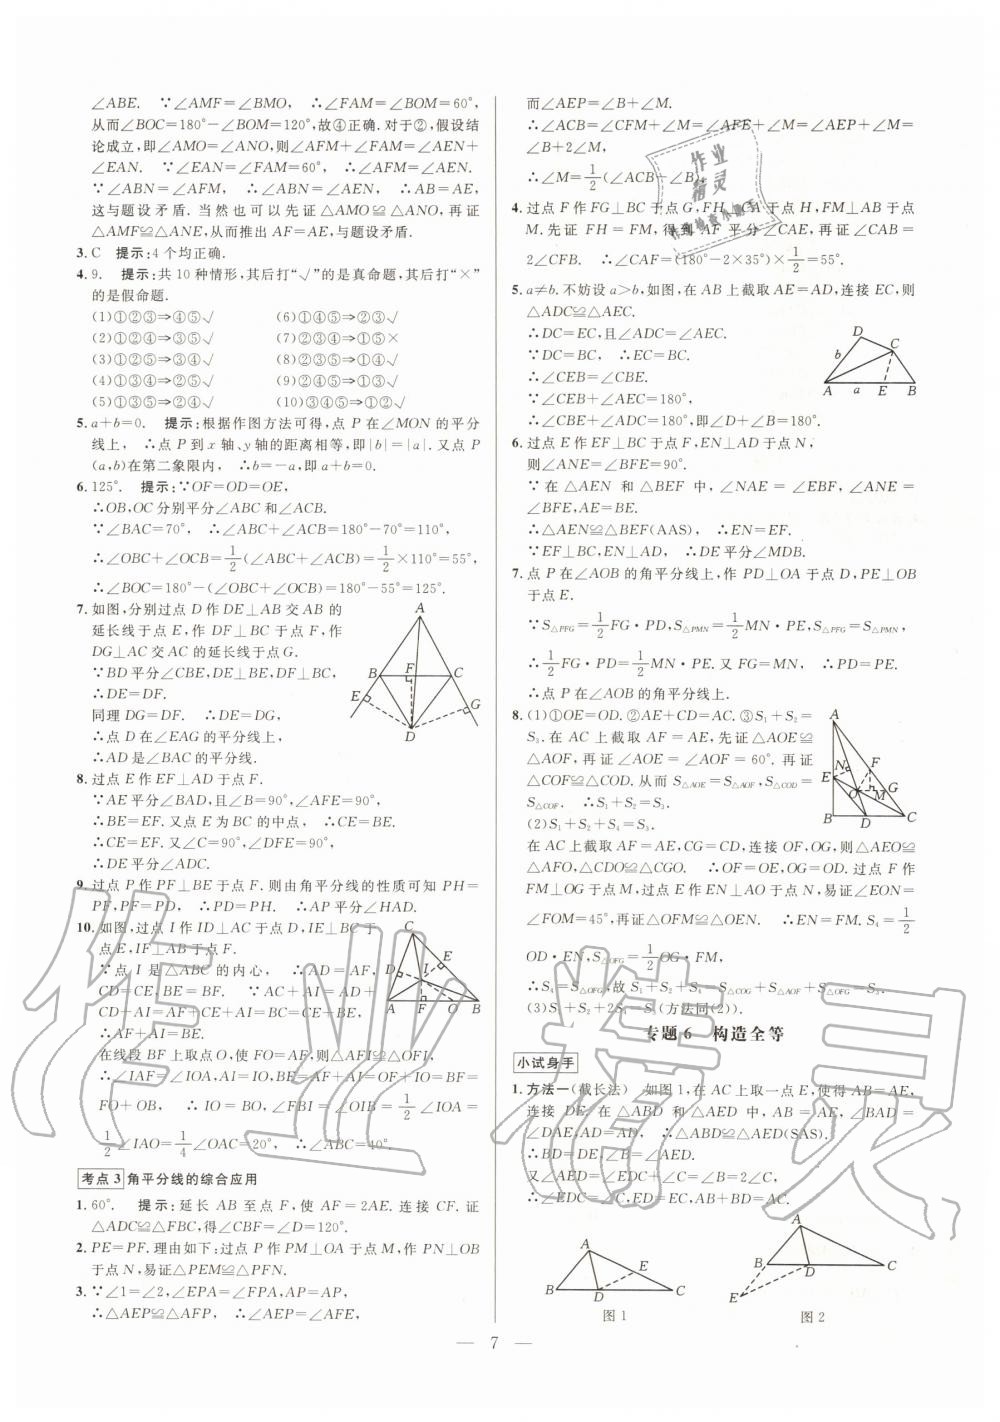 ∠ABE. ∵∠AMF=∠BMO, ∴∠FAM=∠BOM=60°,
从而∠BOC=180°-∠BOM=120°,故④正确. 对于②,假设结
论成立,即∠AMO=∠ANO,则∠AFM+∠FAM=∠AEN+
∠EAN. ∵∠EAN=∠FAM=60°, ∴∠AFM=∠AEN.
∵∠ABN=∠AFM, ∴∠ABN=∠AEN, ∴AB=AE,
这与题设矛盾. 当然也可以先证△AMO≌△ANO,再证
△AMF≌△ANE,从而推出AF=AE,与题设矛盾.
3. C 提示:4个均正确.
4. 9. 提示:共10种情形,其后打“√”的是真命题,其后打“×”
的是假命题.
(1)①②③⇒④⑤√ (6)①④⑤⇒②③√
(2)①②④⇒③⑤√ (7)②③④⇒①⑤×
(3)①②⑤⇒③④√ (8)②③⑤⇒①④√
(4)①③④⇒②⑤√ (9)②④⑤⇒①③√
(5)①③⑤⇒②④√ (10)③④⑤⇒①②√
5. a+b=0. 提示:根据作图方法可得,点P在∠MON的平分
线上, ∴点P到x轴、y轴的距离相等,即|b|=|a|. 又点P
(a,b)在第二象限内, ∴b=-a,即a+b=0.
6. 125°. 提示:∵OF=OD=OE,
∴OB,OC分别平分∠ABC和∠ACB.
∵∠BAC=70°, ∴∠ABC+∠ACB=180°-70°=110°,
∴∠OBC+∠OCB=1/2(∠ABC+∠ACB)=1/2×110°=55°,
∴∠BOC=180°-(∠OBC+∠OCB)=180°-55°=125°.
7. 如图,分别过点D作DE⊥AB交AB的
延长线于点E,作DF⊥BC于点F,作
DG⊥AC交AC的延长线于点G.
∵BD平分∠CBE,DE⊥BE,DF⊥BC,
∴DE=DF.
同理DG=DF. ∴DE=DG,
∴点D在∠EAG的平分线上,
∴AD是∠BAC的平分线.
A
B
F
C
E
G
D
8. 过点E作EF⊥AD于点F.
∵AE平分∠BAD,且∠B=90°,∠AFE=90°,
∴BE=EF. 又点E为BC的中点, ∴CE=BE.
∴CE=EF. 又∠C=90°,∠DFE=90°,
∴DE平分∠ADC.
9. 过点P作PF⊥BE于点F. 则由角平分线的性质可知PH=
PF,PF=PD, ∴PD=PH. ∴AP平分∠HAD.
10. 如图,过点I作ID⊥AC于点D,IE⊥BC于
点E,IF⊥AB于点F.
∵点I是△ABC的内心, ∴AD=AF,
CD=CE,BE=BF. ∵AC+AI=AD+
CD+AI=AF+CE+AI=BC=BE+CE,
∴AF+AI=BE.
在线段BF上取点O,使FO=AF,则△AFI≌△OFI,
∴∠IAF=∠IOA,AI=IO,BF=BE=AF+AI=
FO+OB, ∴IO=BO,∠FBI=∠OIB=1/2∠IOA=
1/2∠IAO=1/4∠OAC=20°, ∴∠ABC=40°.
C
E
D
I
A
F
O
B
考点3 角平分线的综合应用
1. 60°. 提示:延长AB至点F,使AF=2AE. 连接CF. 证
△ADC≌△FBC,得∠CBF=∠D=120°.
2. PE=PF. 理由如下:过点P作PM⊥OA于点M,作PN⊥OB
于点N,易证△PEM≌△PFN.
3. ∵∠1=∠2,∠EPA=∠FPA,AP=AP,
∴△AEP≌△AFP, ∴∠AEP=∠AFE,
而∠AEP=∠B+∠M.
∴∠ACB=∠CFM+∠M=∠AFE+∠M=∠AEP+∠M=
∠B+2∠M,
∴∠M=1/2(∠ACB-∠B).
4. 过点F作FG⊥BC于点G,FH⊥CA于点H,FM⊥AB于点
M.先证FH=FM,得到AF平分∠CAE,再证∠CAB=
2∠CFB. ∴∠CAF=(180°-2×35°)×1/2=55°.
5. a≠b. 不妨设a>b,如图,在AB上截取AE=AD,连接EC,则
△ADC≌△AEC.
∴DC=EC,且∠ADC=∠AEC.
∵DC=BC, ∴EC=BC.
∴∠CEB=∠CBE.
∵∠CEB+∠AEC=180°,
∴∠CBE+∠ADC=180°,即∠D+∠B=180°.
D
C
b
A
a
E
B
6. 过点E作EF⊥BD于点F,EN⊥AD于点N,
则∠ANE=∠BFE=90°.
∵在△AEN和△BEF中,∠NAE=∠EBF,∠ANE=
∠BFE,AE=BE.
∴△AEN≌△BEF(AAS), ∴EN=EF.
∵EF⊥BC,EN⊥AD, ∴DE平分∠MDB.
7. 点P在∠AOB的角平分线上,作PD⊥OA于点D,PE⊥OB
于点E.
∵S△PFG=1/2FG·PD,S△PMN=1/2MN·PE,S△PFG=S△PMN,
∴1/2FG·PD=1/2MN·PE. 又FG=MN, ∴PD=PE.
∴点P在∠AOB的角平分线上.
8. (1)①OE=OD. ②AE+CD=AC. ③S₁+S₂=
S₃. 在AC上截取AF=AE,先证△AOE≌
△AOF,再证∠AOE=∠AOF=60°. 再证
△COF≌△COD. 从而S△AOE=S△AOF,S△COD=
S△COF. ∴S₁+S₂=S₃.
(2)S₁+S₂+S₄=S₃.
在AC上截取AF=AE,CG=CD,连接OF,OG,则△AEO≌
△AFO,△CDO≌△CGO. ∴OF=OE,OG=OD. 过点F作
FM⊥OG于点M,过点E作EN⊥AD于点N,易证∠EON=
∠FOM=45°,再证△OFM≌△OEN. ∴EN=FM. S₄=1/2
OD·EN,S△OFG=1/2OG·FM,
∴S₄=S△OFG,故S₁+S₂+S₄=S△COG+S△AOF+S△OFG=S₃.
(3)S₁+S₂=S₃(方法同(2)).
A
N
F
E
G
O
M
B
D
C
专题6 构造全等
小试身手
1. 方法一(截长法) 如图1,在AC上取一点E,使得AB=AE,
连接DE. 在△ABD和△AED中,AB=AE,∠BAD=
∠EAD,AD=AD, ∴△ABD≌△AED(SAS).
∴∠B=∠AED,BD=DE.
又∠AED=∠EDC+∠C=∠B=2∠C,
∴∠EDC=∠C, ∴ED=EC,AB+BD=AC.
A
E
B
D
C
图1
A
B
D
C
E
图2
— 7 —
作业精灵
作业
精灵